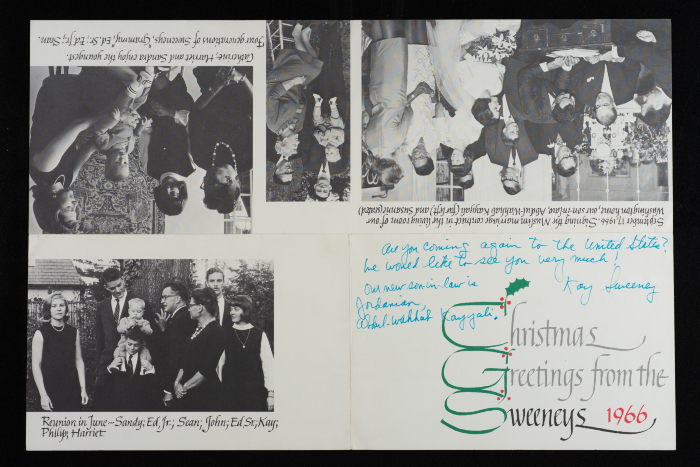 Four generations of Sweeneys, "Grammy," Ed. Sr.; Ed, Jr.; Sean.
Catherine, Harriet and Sandra enjoy the youngest.
September 17, 1966—Signing the Muslim marriage contract in the living room of our
Washington home, our son in law, Abdul-Wahhab Kayyali (far left) and Susanne (seated)
Are you coming again to the United States?
We would like to see you very much!
Our new son-in-law is
Jordanian,
Abdul-Wahhab Kayyali.
Kay Sweeney
Christmas
Greetings from the
Sweeneys 1966
Reunion in June—Sandy; Ed, Jr.; Sean; John; Ed Sr.; Kay;
Philip; Harriet